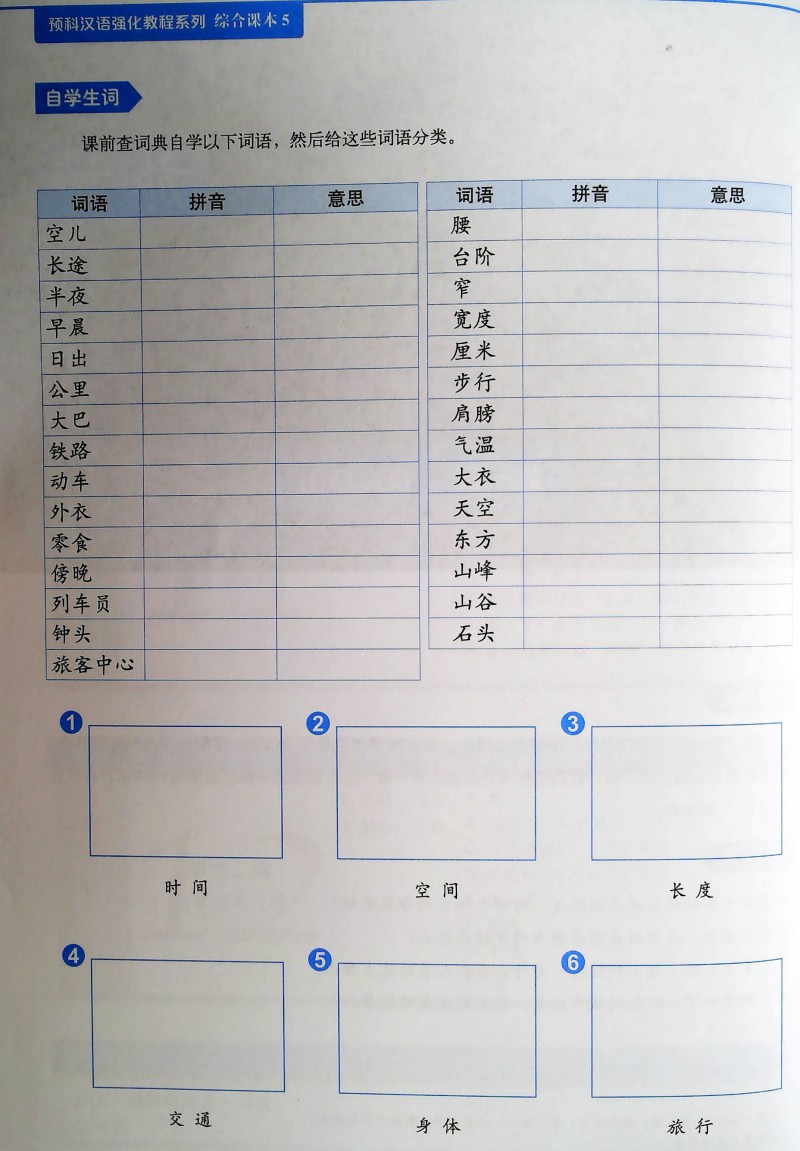 预科汉语强化教程系列 综合课本 5
自学生词
课前查词典自学以下词语，然后给这些词语分类。
词语 拼音 意思
空儿
长途
半夜
早晨
日出
公里
大巴
铁路
动车
外衣
零食
傍晚
列车员
钟头
旅客中心
词语 拼音 意思
腰
台阶
窄
宽度
厘米
步行
肩膀
气温
大衣
天空
东方
山峰
山谷
石头
1 2 3
时间 空间 长度
4 5 6
交通 身体 旅行